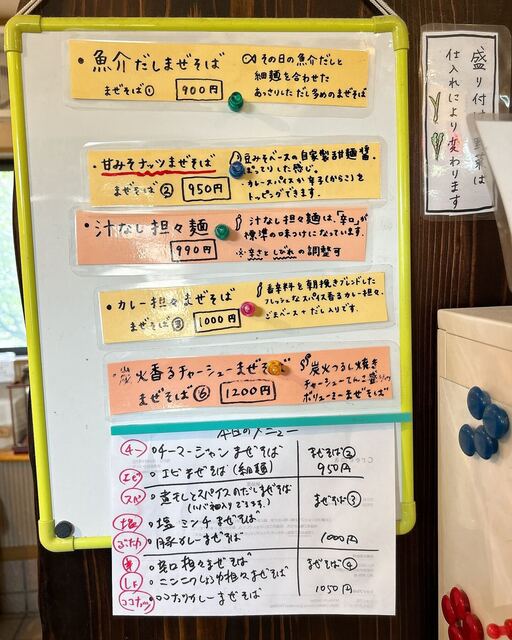 ・魚介だしまぜそば
まぜそば① 900円
その日の魚介だしと
細麺を合わせた
あっさりしただし多めのまぜそば
・甘みそナッツまぜそば
まぜそば② 950円
豆みそベースの自家製甜麺醤。
ぽってりした感じ。
・カレースパイスか辛子(からこ)を
トッピングできます。
・汁なし担々麺
990円
汁なし担々麺は、「辛口」が
標準の味つけになっています。
※辛さとしびれの調整可
・カレー担々まぜそば
まぜそば③ 1000円
香辛料を朝挽きブレンドした
フレッシュなスパイス香るカレー担々。
ごまベース+だし入りです。
炭火香るチャーシューまぜそば
まぜそば⑥ 1200円
炭火つるし焼き
チャーシューてんこ盛りの
ボリューミーまぜそば
本日のメニュー
チーマージャンまぜそば
まぜそば②
950円
エビ
エビまぜそば(細麺)
スパ
煮干しとスパイスのだしまぜそば
まぜそば③
塩
塩ミンチまぜそば
ぶたカレ
豚カレーまぜそば
1000円
辛口担々まぜそば
まぜそば④
ニンニクしょうゆ担々まぜそば
1050円
ココナッツ
ココナッツカレーまぜそば
盛り付け野菜は
仕入れにより変わります